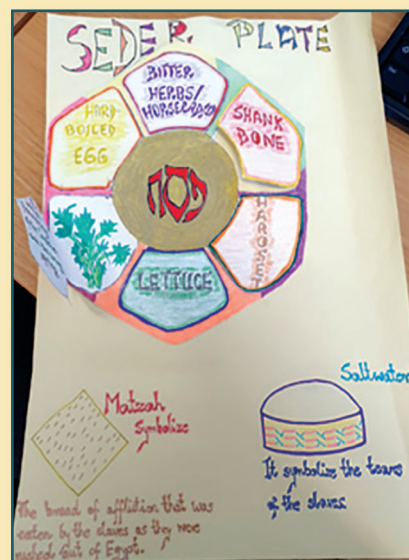 SEDER PLATE
BITTER
HERBS/
HORSERADISH
SHANK
BONE
HAROSET
LETTUCE
HARD
BOILED
EGG
פסח
Matzah
Symbolize
The bread of affliction that was
eaten by the slaves as they were
rushed out of Egypt.
Saltwater
It symbolize the tears
of the slaves